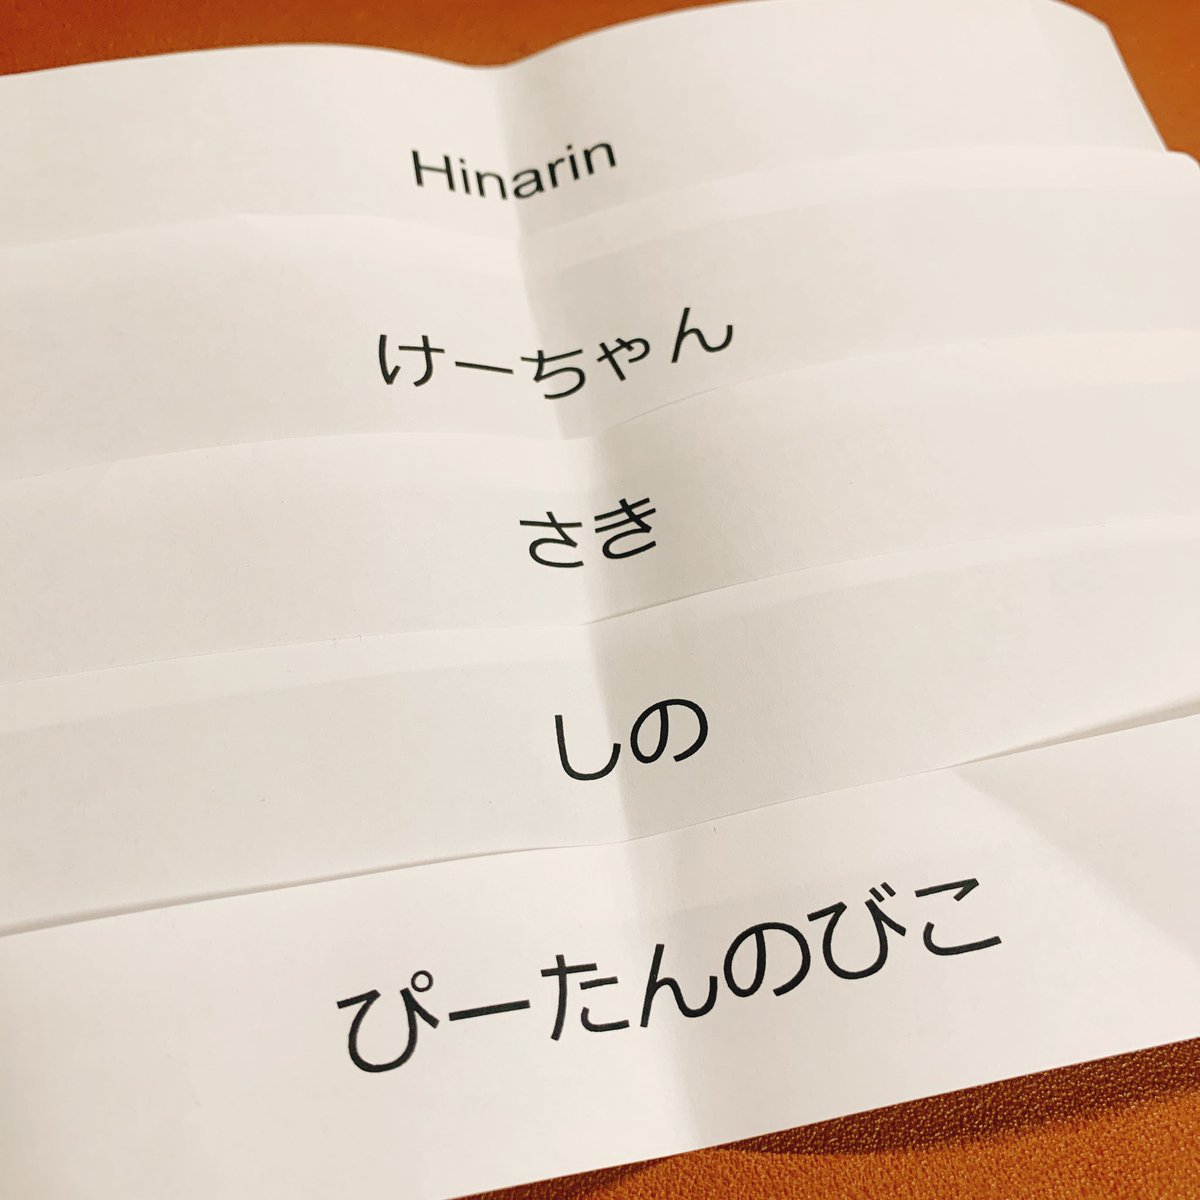 Hinarin
けーちゃん
さき
しの
ぴーたんのびこ